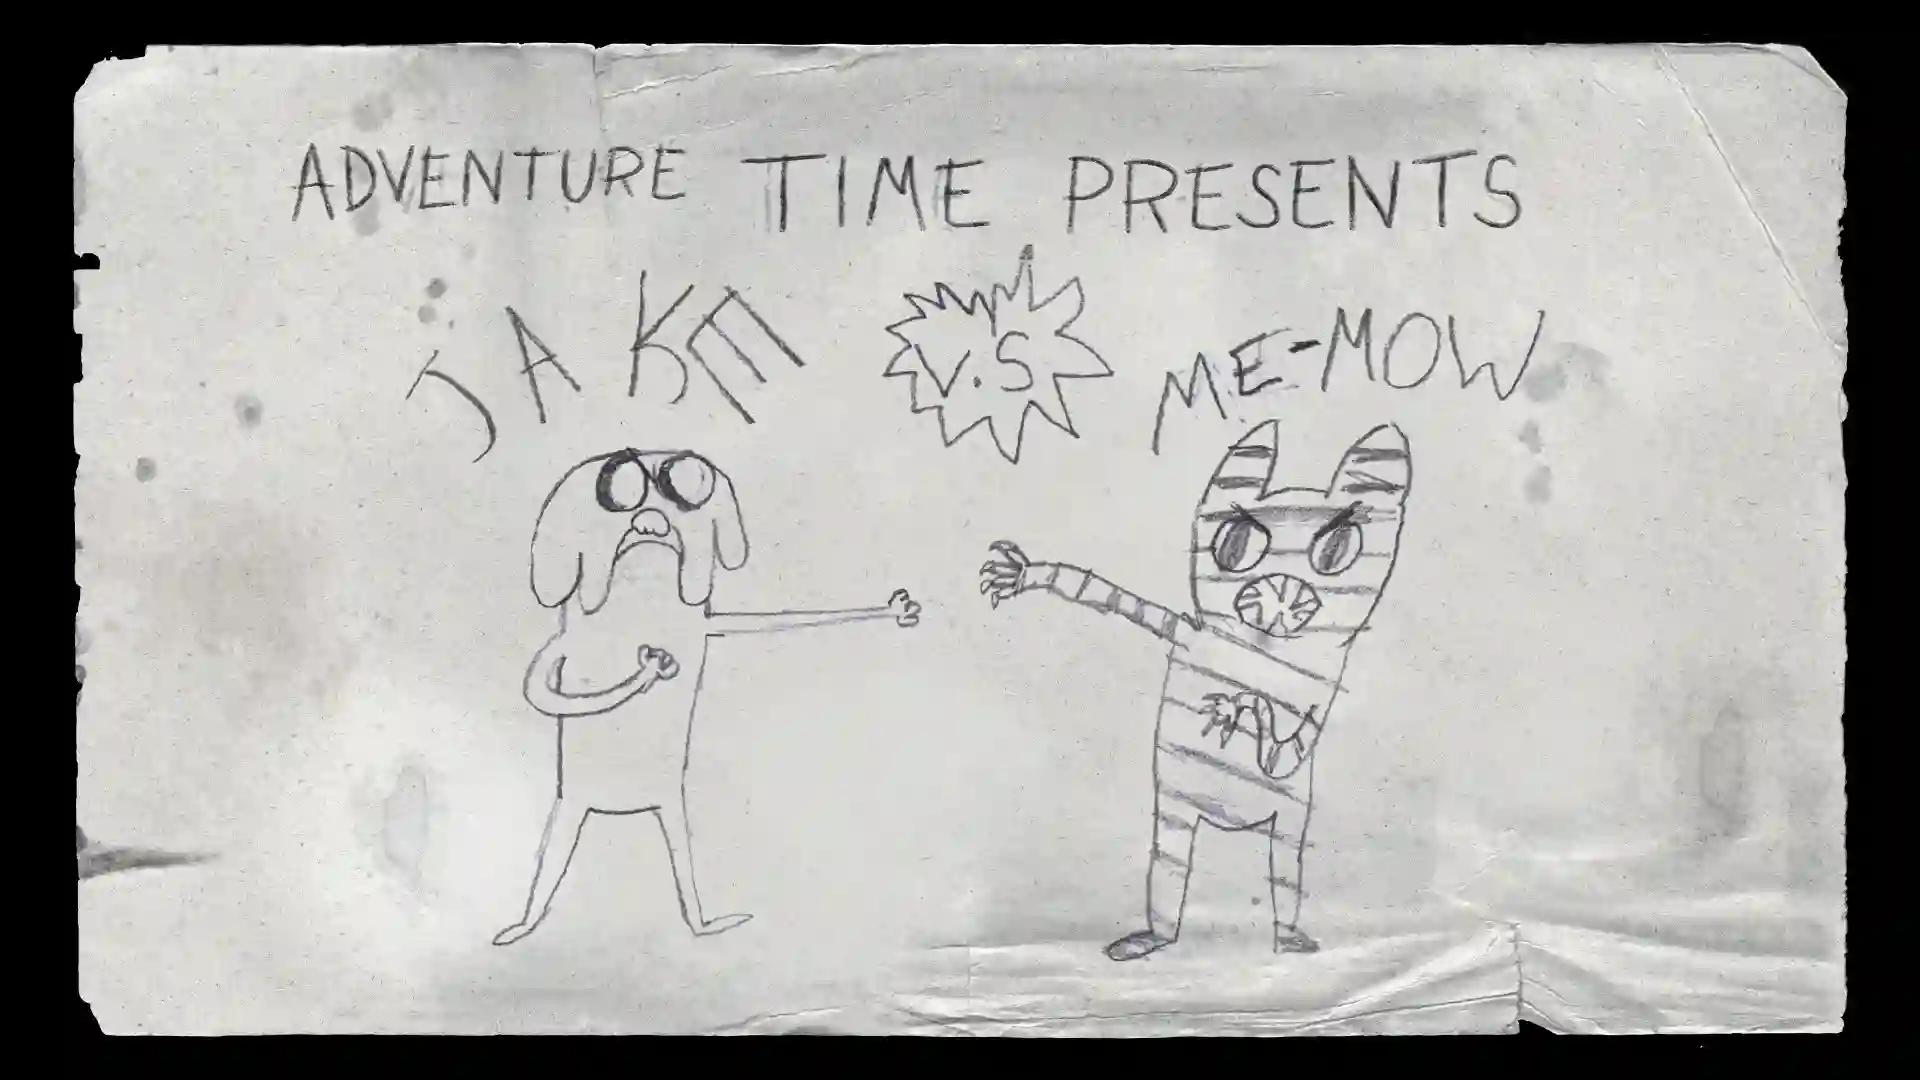 ADVENTURE TIME PRESENTS
JAKE V.S ME-MOW